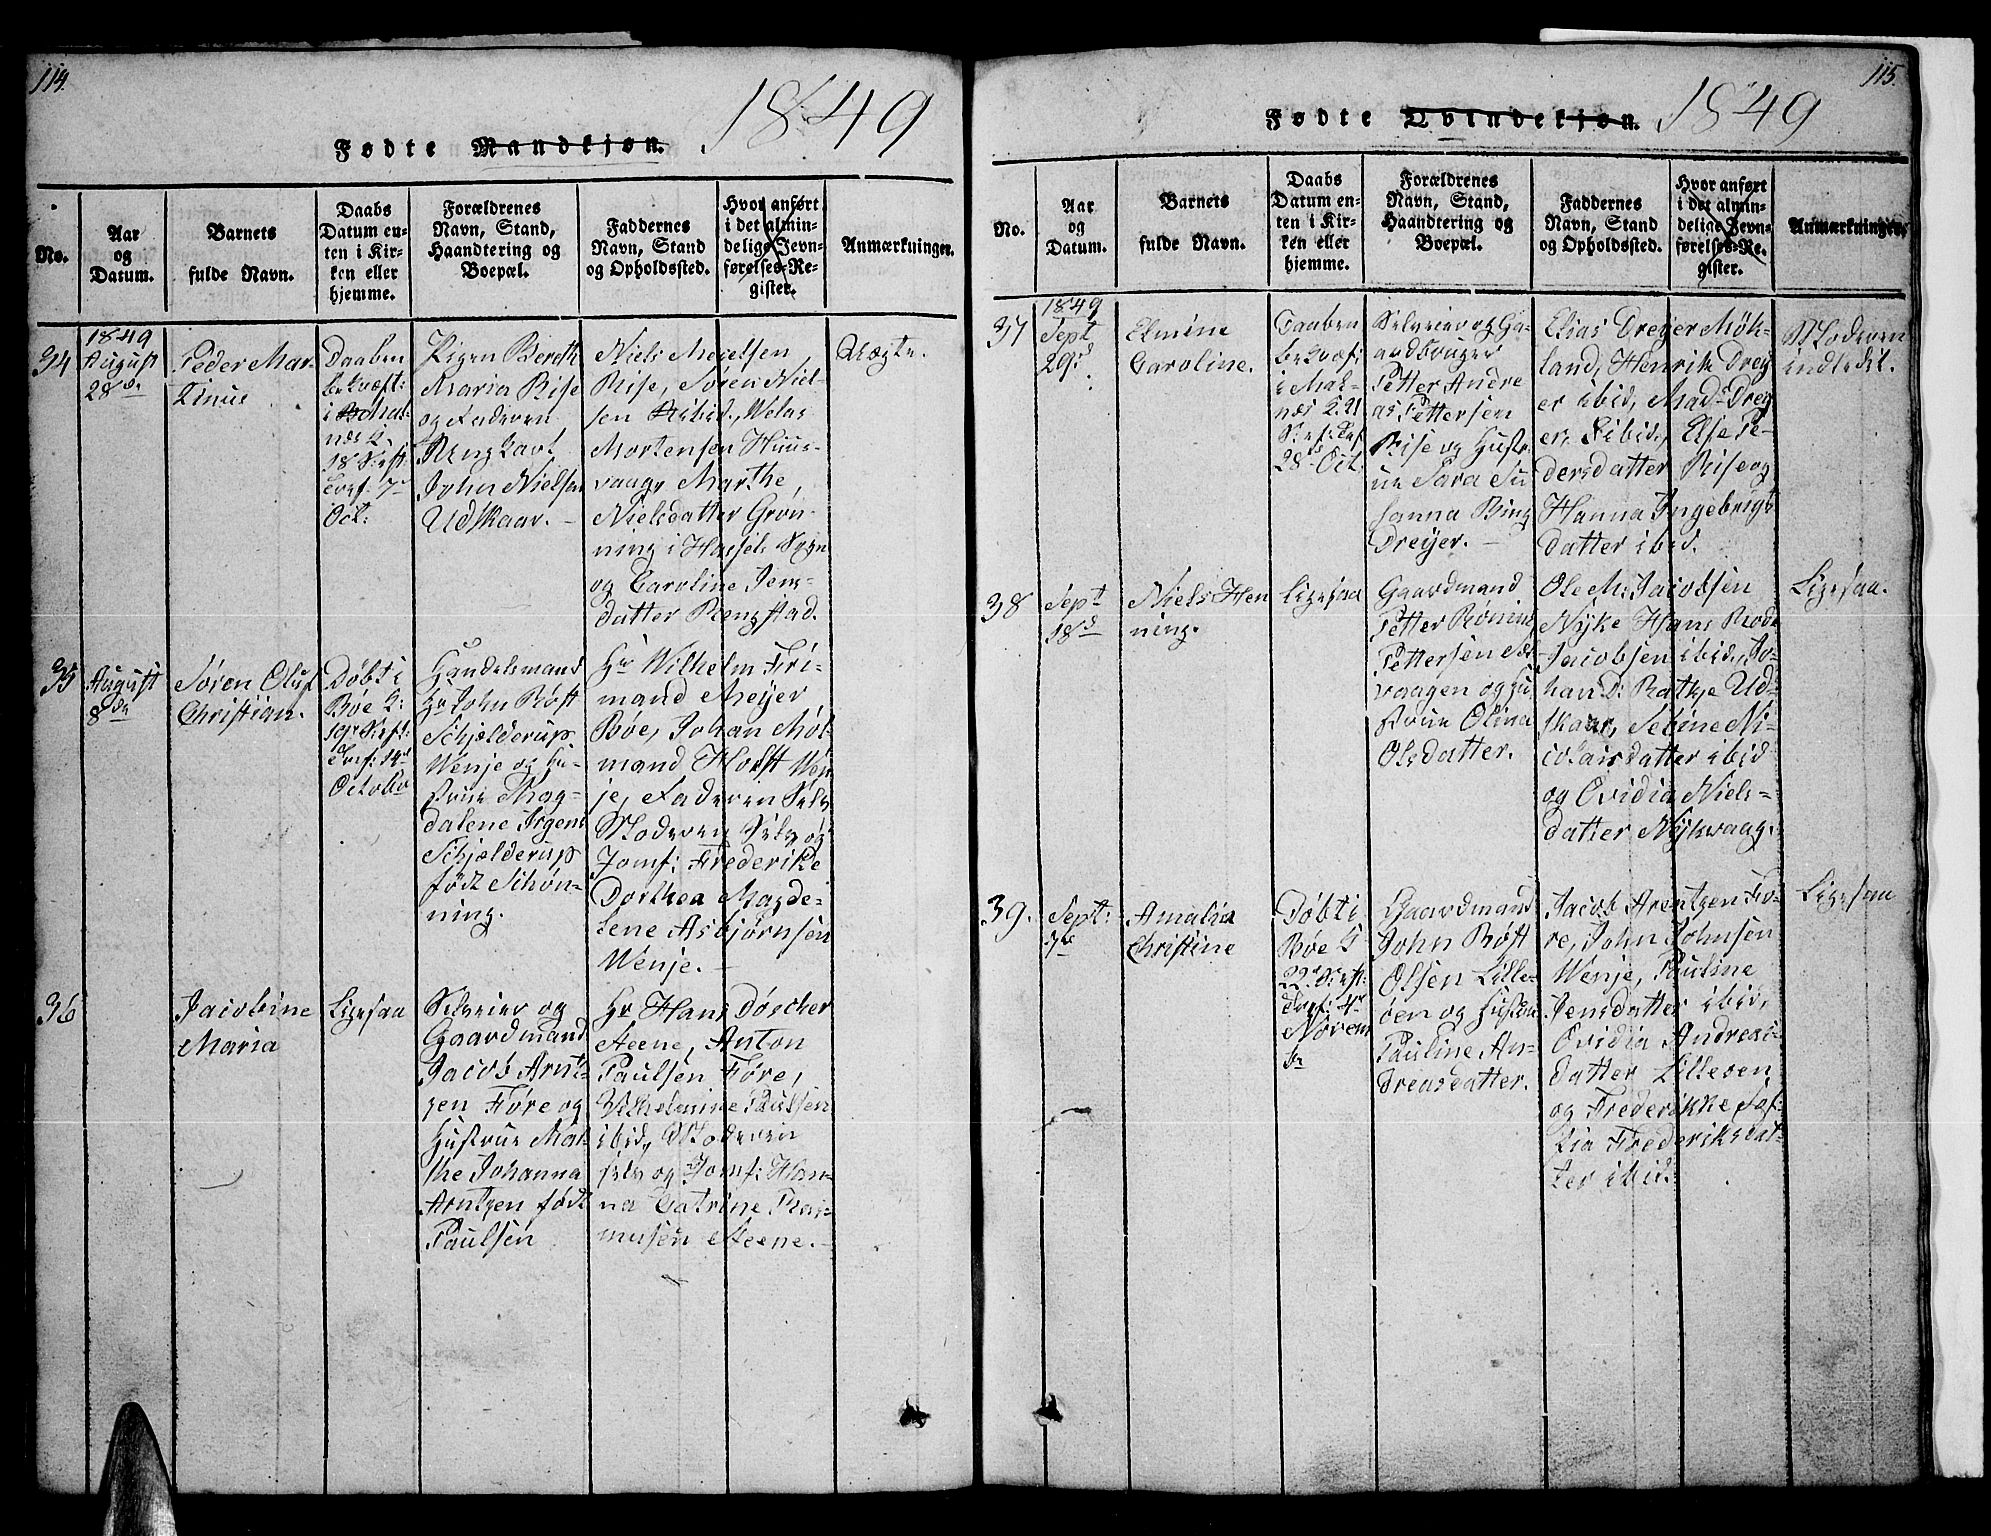 114.
1849
Fødte Mandkjøn.
No.
Aar
og
Datum.
Barnets
fulde Navn.
Daabs
Datum en-
ten i Kir-
ken eller
hjemme.
Forældrenes
Navn, Stand,
Haandtering og
Boepæl.
Faddernes
Navn, Stand
og Opholdssted.
Hvor anført
i det almin-
delige Jevn-
førelses-Re-
gister.
Anmærkninger.
34
1849
August
28de
Peder Mar-
tinus
Daaben
bekræft:
i
næs K.
18 Sept
Conf. 7de
Oct:
Pigen Bereth
Maria Rise
og Faderen
Ungkarl
John Nielsen
Udskaar. –
Niels Meyelsen
Rise, Søren Niel-
sen ibid., Welas
Mortensen Huus-
vaag, Marthe
Nielsdatter Grøn-
ning i Hassels Sogn
og Caroline Jens-
datter Ringstad.
Uægte.
35
August
8de
Søren Oluf
Christian.
Døbt i
Bøe K:
19de Sept:
Conf: 14de
October
Handelsmand
Hr John Røst
Schjelderup
Wenje og Hu-
strue Mag-
dalene Irgens
Schjelderup
født Schøn-
ning.
Hr Wilhelm Fri-
mand Meyer
Bøe, Johan Møl-
mand Holst Wen-
je, Faderen Selv
Moderen Selv og
Jomf: Frederikke
Dorthea Magda-
lene Asbjørnsen
Wenje. –
36
Jacobine
Maria
Ligesaa
Selveier og
Gaardmand
Jacob Arnt-
zen Føre og
Hustrue Mar-
the Johanna
Arntzen født
Paulsen
Hr Hans Døscher
Steene, Anton
Paulsen Føre,
Vilhelmine Paulsen
ibid, Moderen
selv og Jomf: Han-
na Catrine Ras-
musen Steene. –
115.
Fødte Qvindekjøn. 1849
No.
Aar
og
Datum.
Barnets
fulde Navn.
Daabs
Datum en-
ten i Kir-
ken eller
hjemme.
Forældrenes
Navn, Stand,
Haandtering og
Boepæl.
Faddernes
Navn, Stand
og Opholdssted.
Hvor anført
i det almin-
delige Jevn-
førelses-Re-
gister.
Anmærkninger.
37
1849
Sept
29de
Elmine
Caroline.
Daaben
bekræf:
i Mal-
næs K. 21
Sept: Conf
28de Oct.
Selveier og Ga-
ardbruger
Petter Andre
as Pettersen
Rise og Hustr-
ue Sara Su
sanna Bing
Dreyer. –
Elias Dreyer Møk-
land, Henrik Drey
er ibid, Mads Drey
er, ibid, Else Pe-
dersdatter Rise og
Hanna Ingebrigt
datter ibid.
Moderen
indledet.
38
Sept
18de
Niels Hen
ning.
Ligesaa
Gaardmand
Petter Røning
Pettersen
vaagen og Hu
strue Olina
Olsdatter.
Ole M: Jacobsen
Nyke Hans Rode
Jacobsen ibid, Jo-
han D: Ratkje Ud-
skaar, Sebine Ni-
colaisdatter ibid
og Ovidia Niels-
datter Nykvaag.
Ligesaa.
39.
Sept:
7de
Amalia
Christine
Døbt i
Bøe K
22de Sept:
Conf: 4de
Novem
br
Gaardmand
John Røst
Olsen Lille-
øen og Hustru
Pauline An-
dreasdatter.
Jacob Arentzen Fø-
re, John Johnsen
Wenje, Pauline
Jensdatter ibid,
Ovidia Andreas-
datter Lilleøen
og Frederikke Sof-
fia Frederiksdat-
ter ibid.
Ligesaa